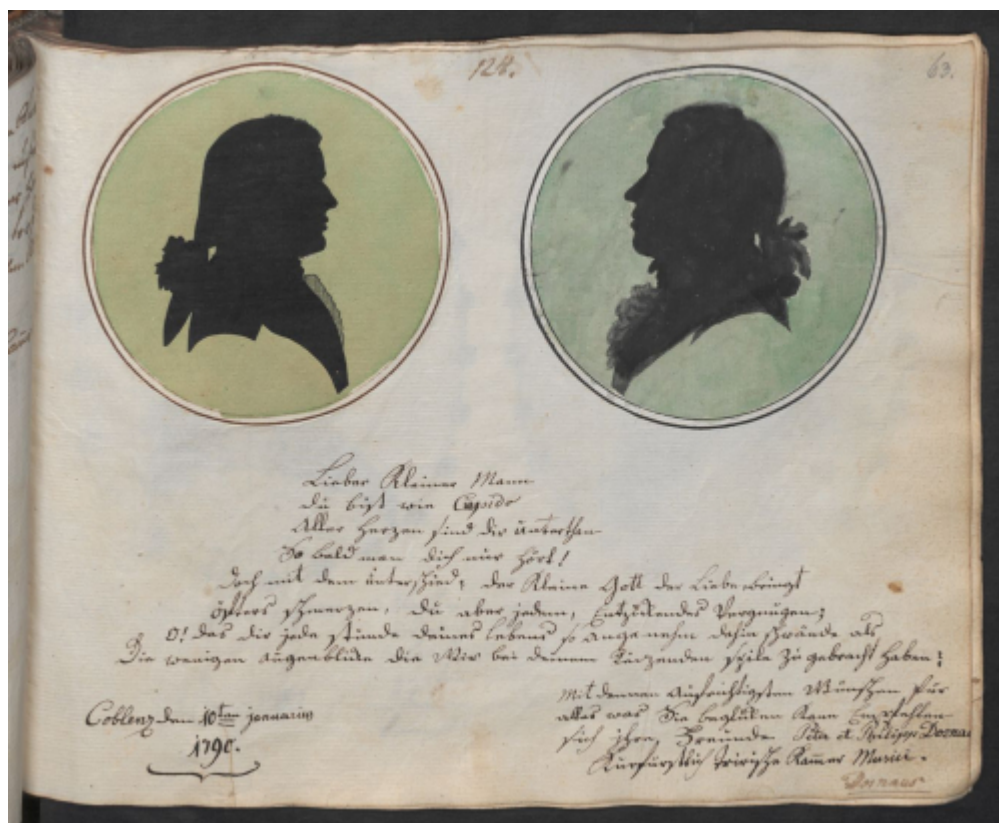 128.
63.
Lieber Kleiner Mann
du bist wie Cupido
Aller Herzen sind dir unterthan
So bald man dich nur hört!
doch mit dem unterschied; der Kleine Gott der Liebe bringt
öfters schmerzen, du aber jedem, Entzükendes Vergnügen;
O! das dir jede stunde deines lebens so angenehm dahin schwände als
Die wenigen augenblike die Wir bei deinem spile zu gebracht haben;
Mit dennen Aufrichtigsten Wünschen für
alles was Sie beglüken kann Empfehlen
sich ihre Freunde Peter et Philipp Dornaus
Kurfürstlich Trirische Kammer Musici.
Coblenz den 10ten januarius
1790.
Dornaus